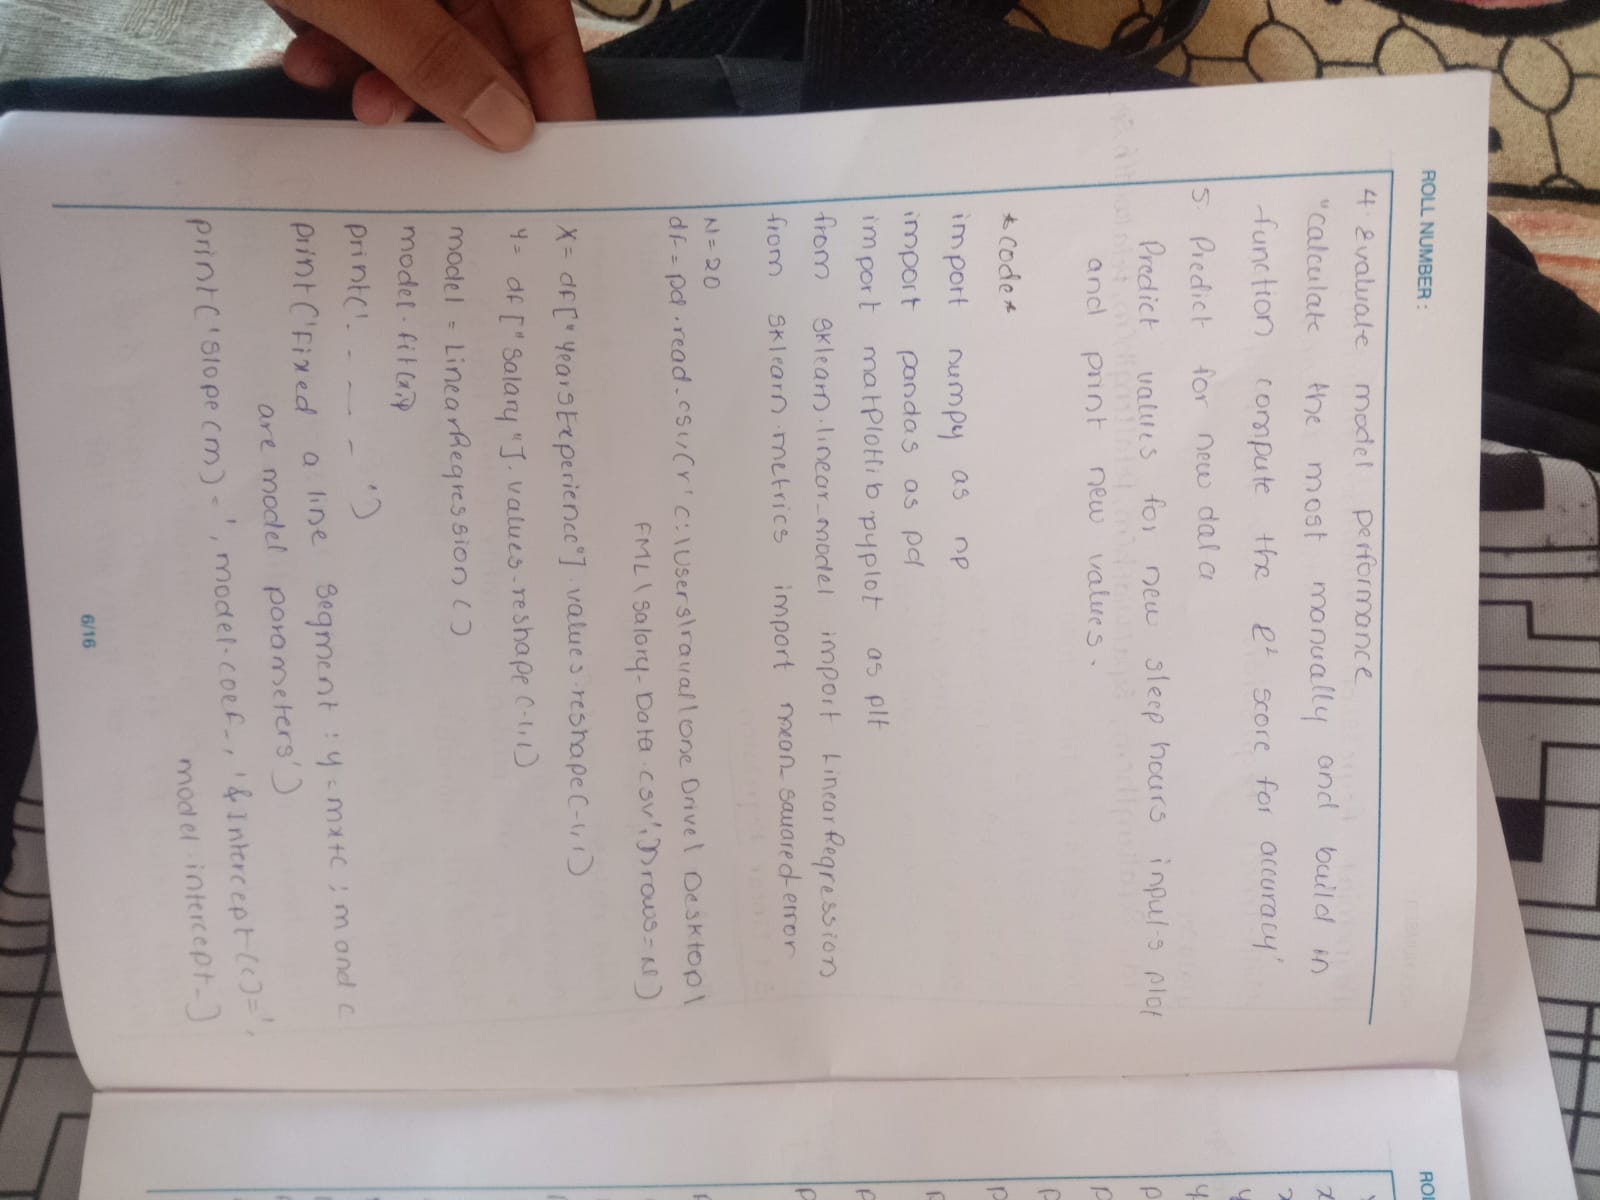 ROLL NUMBER :
4. Evaluate model performance
"calculate the most manually and build in
function compute the R² score for accuracy'
5. Predict for new data
Predict values for new sleep hours inputs plot
and print new values.
*code*
import numpy as np
import pandas as pd
import matplotlib.pyplot as plt
from sklearn.linear_model import LinearRegression
from sklearn.metrics import mean_sauared-error
N=20
df=pd.read_csv(r'C:\Users\ravali\One Drive\Desktop\
FML\Salary-Data.csv', nrows=N)
X= df["YearsExperience"].values.reshape(-1,1)
Y= df ["Salary"].values.reshape(-1,1)
model = LinearRegression()
model.fit(x,y)
print('. - — - ')
print('Fixed a line Segment : y=mx+c ; m and c
are model parameters')
print('Slope(m)=', model.coef_, '& Intercept(c)=',
model.intercept_)
6/16
ROL